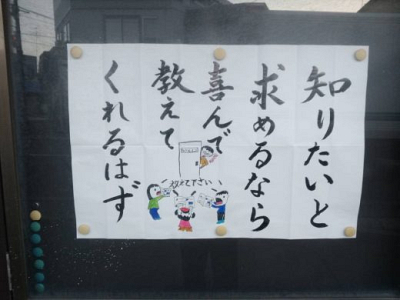 知りたいと
求めるなら
喜んで
教えて
くれるはず
教えて下さい